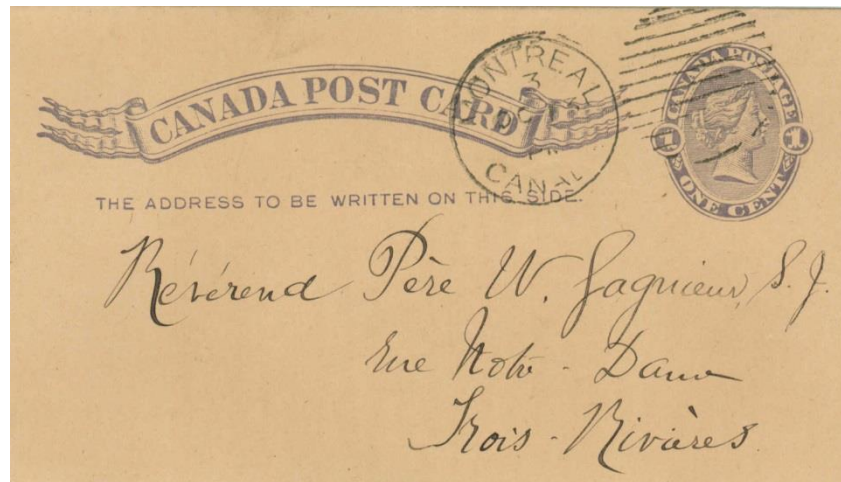 CANADA POST CARD
MONTREAL
3
CANADA
CANADA POSTAGE
1 1
ONE CENT
THE ADDRESS TO BE WRITTEN ON THIS SIDE.
Révérend Père W. Gagnieur, S. J.
Rue Notre-Dame
Trois-Rivières